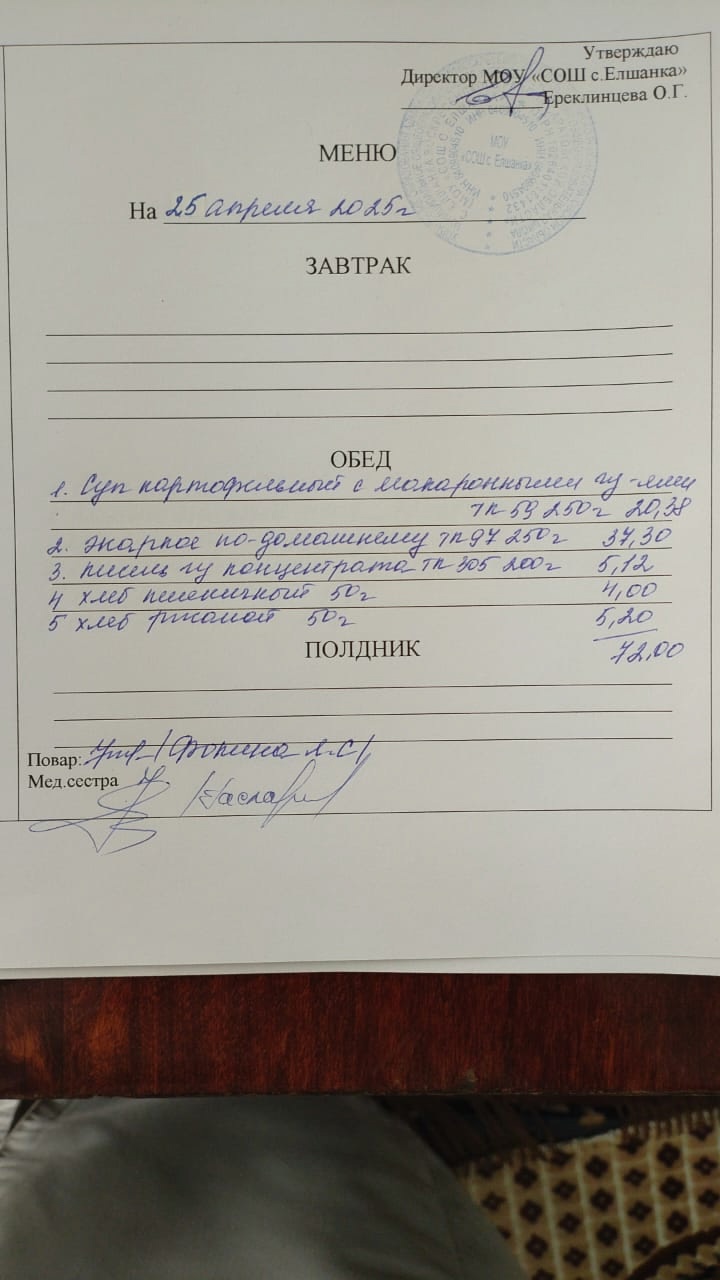 Утверждаю
Директор МОУ «СОШ с.Елшанка»
Ереклинцева О.Г.
МОУ
«СОШ с. Елшанка»
МЕНЮ
На 25 апреля 2025г
ЗАВТРАК
ОБЕД
1. Суп картофельный с макаронными из-лями
ТК 59 250г 20,38
2. Жаркое по-домашнему ТК 97 250г 37,30
3. кисель из концентрата ТК 305 200г 5,12
4 хлеб пшеничный 50г 4,00
5 хлеб ржаной 50г 5,20
72,00
ПОЛДНИК
Повар: Фокина
Мед.сестра